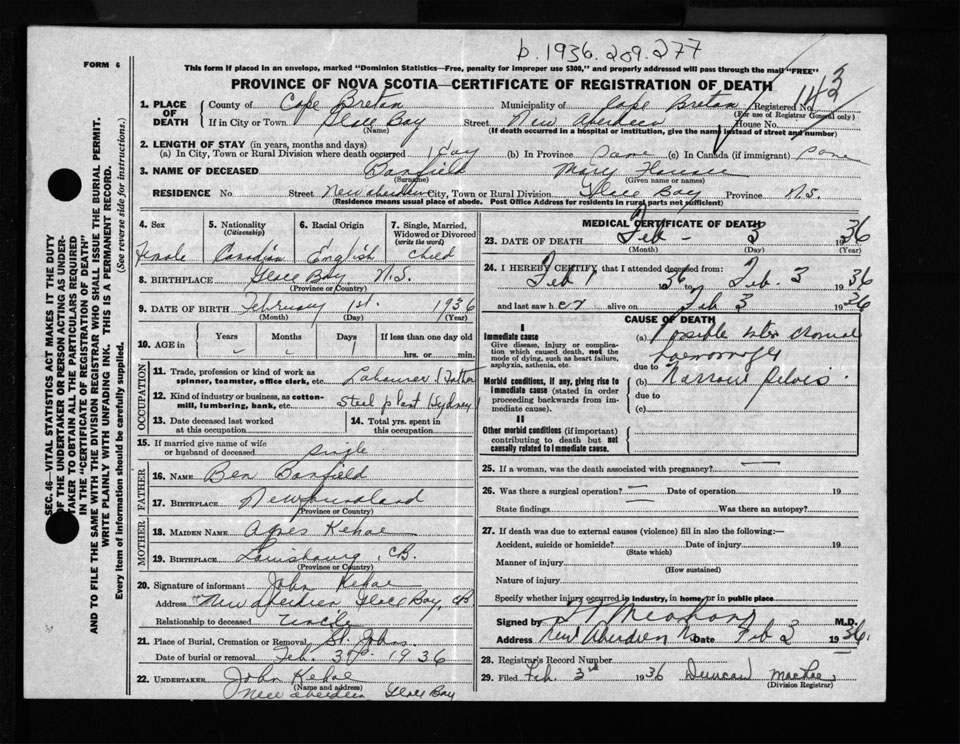 b. 1936.209.277
FORM 6
This form if placed in an envelope, marked "Dominion Statistics—Free, penalty for improper use $300," and properly addressed will pass through the mail "FREE"
PROVINCE OF NOVA SCOTIA—CERTIFICATE OF REGISTRATION OF DEATH
1. PLACE OF DEATH
County of Cape Breton Municipality of Cape Breton Registered No.
(For use of Registrar General only)
If in City or Town Glace Bay Street New Aberdeen House No.
(Name) (If death occurred in a hospital or institution, give the name instead of street and number)
2. LENGTH OF STAY (in years, months and days)
(a) In City, Town or Rural Division where death occurred 1 day (b) In Province same (c) In Canada (if immigrant) same
3. NAME OF DECEASED Banfield Mary
(Surname) (Given name or names)
RESIDENCE No. Street New Aberdeen City, Town or Rural Division Glace Bay Province N.S.
(Residence means usual place of abode. Post Office Address for residents in rural parts not sufficient)
4. Sex
Female
5. Nationality
(Citizenship)
Canadian
6. Racial Origin
English
7. Single, Married, Widowed or Divorced
(write the word)
Child
8. BIRTHPLACE Glace Bay N.S.
(Province or Country)
9. DATE OF BIRTH February 1st. 1936
(Month) (Day) (Year)
10. AGE in Years Months Days If less than one day old
- - 1 hrs. or min.
OCCUPATION
11. Trade, profession or kind of work as
spinner, teamster, office clerk, etc. Labourer (Father)
12. Kind of industry or business, as cotton-
mill, lumbering, bank, etc. Steel plant (Sydney)
13. Date deceased last worked
at this occupation
14. Total yrs. spent in
this occupation
15. If married give name of wife
or husband of deceased single
FATHER
16. NAME Ben Banfield
17. BIRTHPLACE Newfoundland
(Province or Country)
MOTHER
18. MAIDEN NAME Agnes Kehoe
19. BIRTHPLACE Louisbourg, C.B.
(Province or Country)
20. Signature of informant John Kehoe
Address New Aberdeen Glace Bay, C.B
Relationship to deceased Uncle
21. Place of Burial, Cremation or Removal St. Johns
Date of burial or removal Feb. 3rd. 1936
22. UNDERTAKER John Kehoe
(Name and address)
New Aberdeen Glace Bay
MEDICAL CERTIFICATE OF DEATH
23. DATE OF DEATH Feb - 3 1936
(Month) (Day) (Year)
24. I HEREBY CERTIFY that I attended deceased from:
Feb 1 36 to Feb. 3 1936
and last saw her alive on Feb 3 1936
CAUSE OF DEATH
I
Immediate cause
Give disease, injury or complica-
tion which caused death, not the
mode of dying, such as heart failure,
asphyxia, asthenia, etc.
(a) possible inter cranial
haemorrhage
due to
Morbid conditions, if any, giving rise to
immediate cause (stated in order
proceeding backwards from im-
mediate cause).
(b) Narrow Pelvis
due to
(c)
II
Other morbid conditions (if important)
contributing to death but not
causally related to immediate cause.
25. If a woman, was the death associated with pregnancy? —
26. Was there a surgical operation? — Date of operation 19
State findings Was there an autopsy?
27. If death was due to external causes (violence) fill in also the following:—
Accident, suicide or homicide? Date of injury 19
(State which)
Manner of injury
(How sustained)
Nature of injury
Specify whether injury occurred in industry, in home, or in public place
Signed by M.D.
Address New Aberdeen Date Feb 3 1936.
28. Registrar's Record Number
29. Filed Feb. 3rd 1936 Duncan MacRae
(Division Registrar)
SEC. 46—VITAL STATISTICS ACT MAKES IT THE DUTY
OF THE UNDERTAKER OR PERSON ACTING AS UNDER-
TAKER TO OBTAIN ALL THE PARTICULARS REQUIRED
IN THE "CERTIFICATE OF REGISTRATION OF DEATH"
AND TO FILE THE SAME WITH THE DIVISION REGISTRAR WHO SHALL ISSUE THE BURIAL PERMIT.
WRITE PLAINLY WITH UNFADING INK. THIS IS A PERMANENT RECORD.
Every item of information should be carefully supplied. (See reverse side for instructions.)